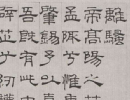 離騷
帝高陽之
孟陬兮惟
肇錫余以
吾既有此
芷兮